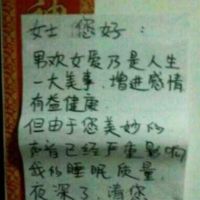 女士 您好：
男欢女爱乃是人生
一大美事，增进感情
有益健康．
但由于您美妙的
声音已经严重影响
我的睡眠质量．
夜深了，请您